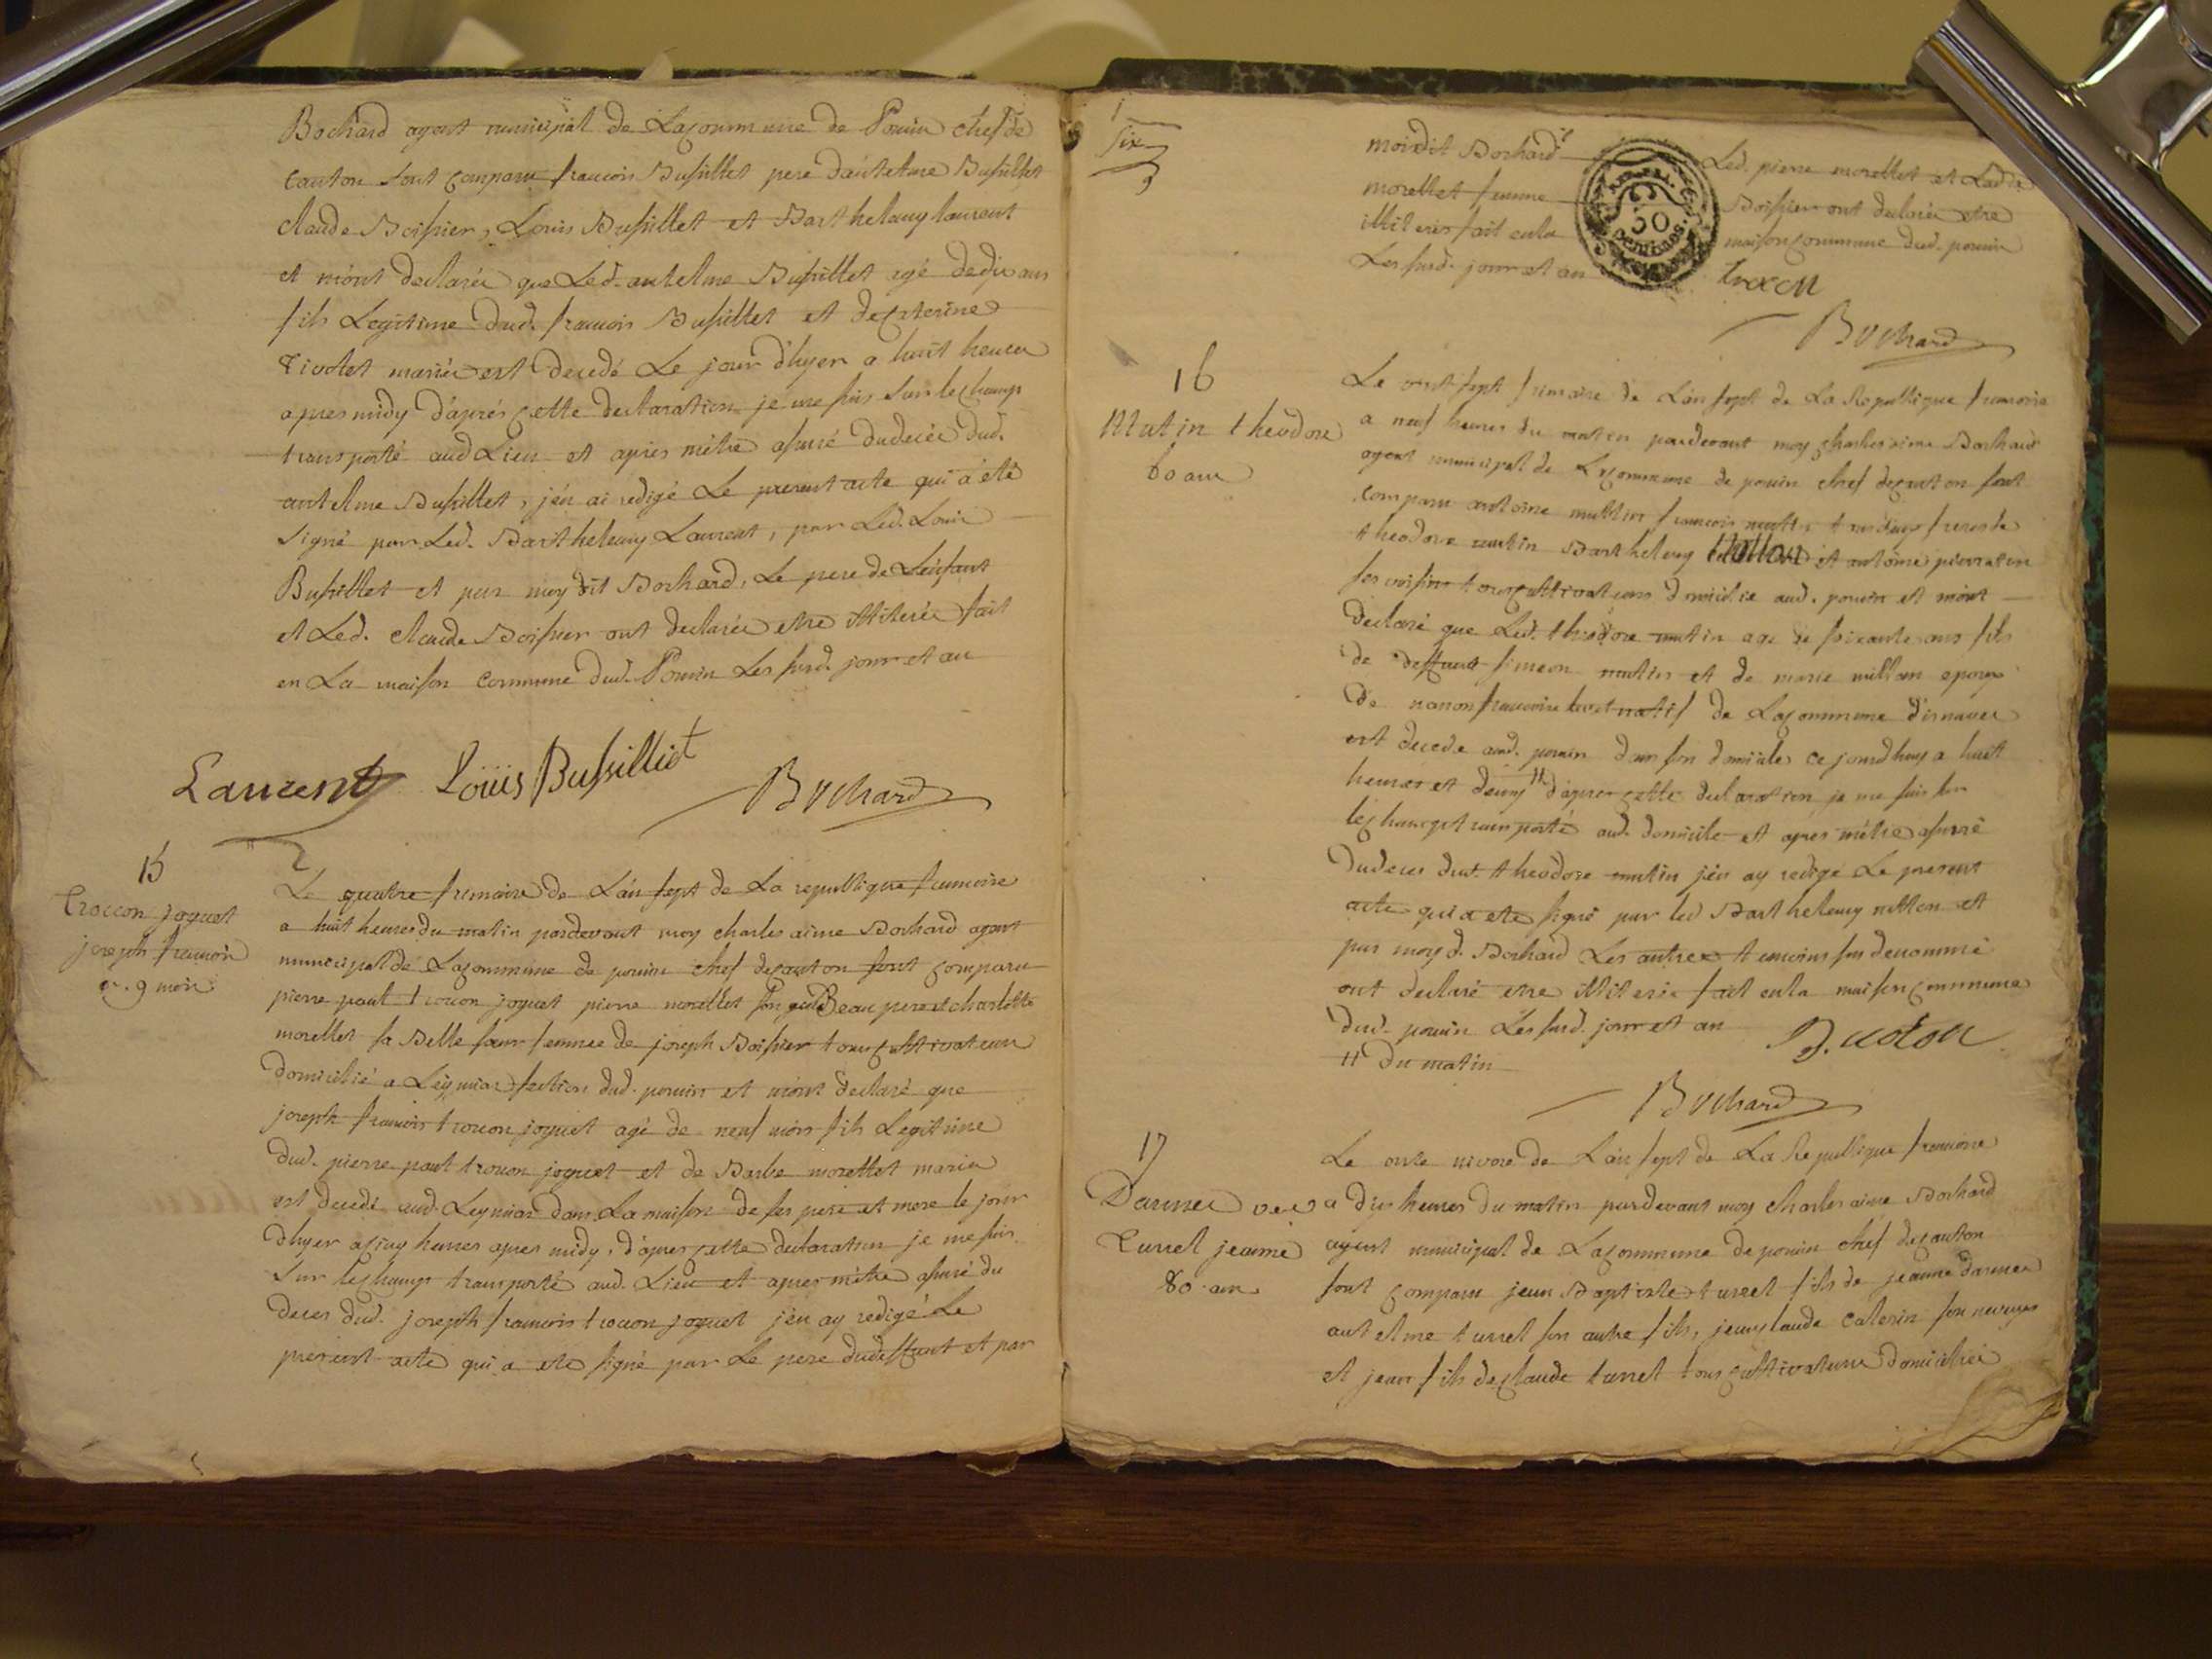 Bochard agent municipal de Lacommune de Pouin chef de
canton sont comparu francois Bussillet pere d'antelme Bussillet
claude Boissier, Louis Bussillet et Barthelemy laurent
et m'ont declarée que Led. antelme Bussillet agé de dix ans
fils Legitime dud. francois Bussillet et de caterine
mariée est decedé Le jour d'hyer a huit heures
apres midy d'aprés cette declaration je me suis sur le champ
transporté aud Lieu et apres m'etre assuré du decée dud.
antelme Bussillet, j'en ai redigé Le present acte qui a été
signé par Led. Barthelemy Laurent, par Led. Louis
Bussillet et par moy dit Bochard, Le pere de L'enfant
et Led. claude Boissier ont declarée etre illiterée fait
en La maison commune dud. Pouin Les susd. jour et an
Laurent Loüis Bussilliet
Bochard
15
Troccon joquet
joseph francois
a. 9 mois
Le quatre frimaire de L'an sept de La republique francoise
a huit heures du matin pardevant moy charles aime Bochard agent
municipal de Lacommune de pouin chef de canton sont comparu
pierre paul trocon joquet pierre morellet son Beau pere et charlotte
morellet sa Belle soeur femme de joseph Boissier tous cultivateurs
domicilié a Leymiar section dud. pouin et m'ont declaré que
joseph francois trocon joquet agé de neuf mois fils Legitime
dud. pierre paul trocon joquet et de Barbe morellet mariée
est decedé aud. Leymiar dans La maison de ses pere et mere le jour
d'hyer a cinq heures apres midy, d'apres cette declaration je me suis
sur le champ transporté aud. Lieu et apres m'etre assuré du
deces dud. joseph francois trocon joquet j'en ay redigé Le
present acte qui a eté signé par Le pere dudeffunt et par
six
moidit Bochard Led. pierre morellet et Lad.
morellet femme Boissier ont declarée etre
illiterés fait en la maison commune dud. pouin
Les susd. jour et an
50 centimes
Bochard
16
Mutin theodore
60 ans
Le vint sept frimaire de L'an sept de La Republique francoise
a neuf heures du matin pardevant moy charles aime Bochard
agent municipal de Lacommune de pouin chef de canton sont
comparu antoine muttin francois muttin tous deux freres de
theodore mutin Barthelemy et antoine
ses voisins tous cultivateurs domicilié aud. pouin et m'ont
declaré que Led. theodore mutin age de soixante ans fils
de deffunt simeon mutin et de marie millian epoux
de nanon francoise natif de Lacommune
est decedé aud. pouin dans son domicile ce jourd'huy a huit
heures et demy # d'apres cette declaration je me suis sur
le champ transporté aud. domicile et apres m'etre assuré
du deces dud. theodore mutin j'en ay redigé Le present
acte qui a eté signé par led Barthelemy et
par moy d. Bochard Les autres temoins sus denommé
ont declaré etre illiterés fait en la maison commune
dud. pouin Les susd. jour et an
# du matin
Bochard
17
Darmee veve
Turrel jeanne
80 ans
Le onze nivose de L'an sept de La Republique francoise
a dix heures du matin pardevant moy charles aime Bochard
agent municipal de Lacommune de pouin chef de canton
sont comparu jean Baptiste turrel fils de jeanne darmee
antelme turrel son autre fils, jean claude caterin son
et jean fils de claude turrel tous cultivateurs domiciliés